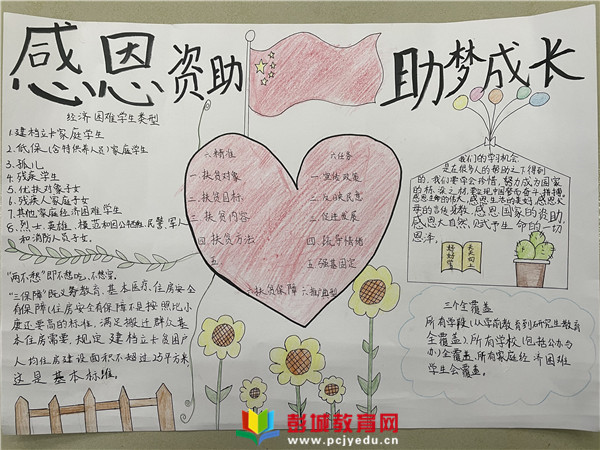 感恩资助
助梦成长
经济困难学生类型
1.建档立卡家庭学生
2.低保(含特供养人员)家庭学生
3.孤儿
4.残疾学生
5.优抚对象子女
6.残疾人家庭子女
7.其他家庭经济困难学生
8.烈士、英雄、模范和因公牺牲民警、军人
和消防人员子女。
"两不愁"即不愁吃、不愁穿。
"三保障"既义务教育、基本医疗、住房安全
有保障(住房安全有保障不是按照比小
康还要高的标准,满足搬迁群众基
本住房需要,规定建档立卡贫困户
人均住房建设面积不超过25平方米
这是基本标准。
六精准
一.扶贫对象
二.扶贫目标
三.扶贫内容
四.扶贫方法
五.
六扶贫保障
六任务
一.宣传政策
二.
三.促进发展
四.
五.强基固定
六推广典型
我们的学习机会
是在很多人的帮助之下得到
的,我们要学会珍惜,努力成为国家
的栋梁之材,要实现中国梦而奋斗,拼搏,
感恩生命的伟大,感恩生活的美好,感恩父
母的言传身教,感恩国家的资助,
感恩大自然,赋予生命的一切
恩泽。
好好学习
天天向上
三个全覆盖
所有学段(从学前教育到研究生教育
全覆盖)、所有学校(包括公办与
办)全覆盖、所有家庭经济困难
学生全覆盖。
彭城教育网
www.pcjyedu.cn